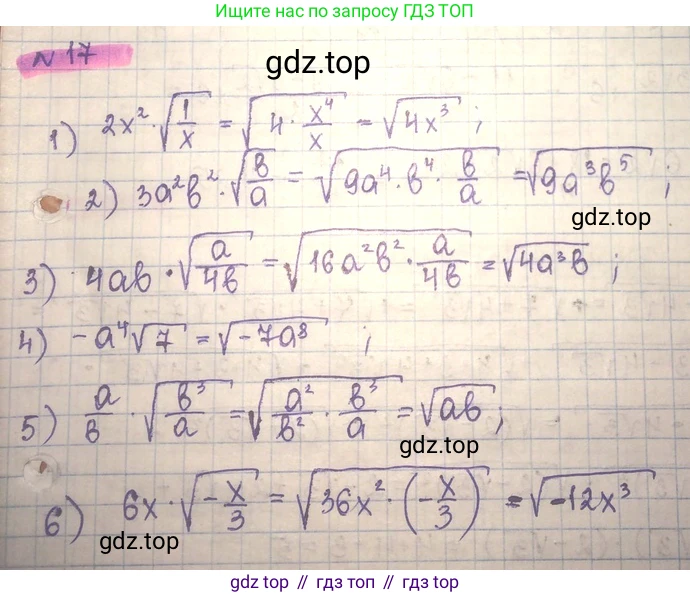 Ищите нас по запросу ГДЗ ТОП
N 17
gdz.top
1) 2x² · √(1/x) = √(4 · x⁴/x) = √(4x³) ;
2) 3a²b² · √(b/a) = √(9a⁴ · b⁴ · b/a) = √(9a³b⁵) ;
gdz.top
3) 4ab · √(a/4b) = √(16a²b² · a/4b) = √(4a³b) ;
4) -a⁴√7 = √(-7a⁸) ;
5) a/b · √(b³/a) = √(a²/b² · b³/a) = √(ab) ;
gdz.top
6) 6x · √(-x/3) = √(36x² · (-x/3)) = √(-12x³)
gdz.top
gdz.top // гдз топ // гдз.топ